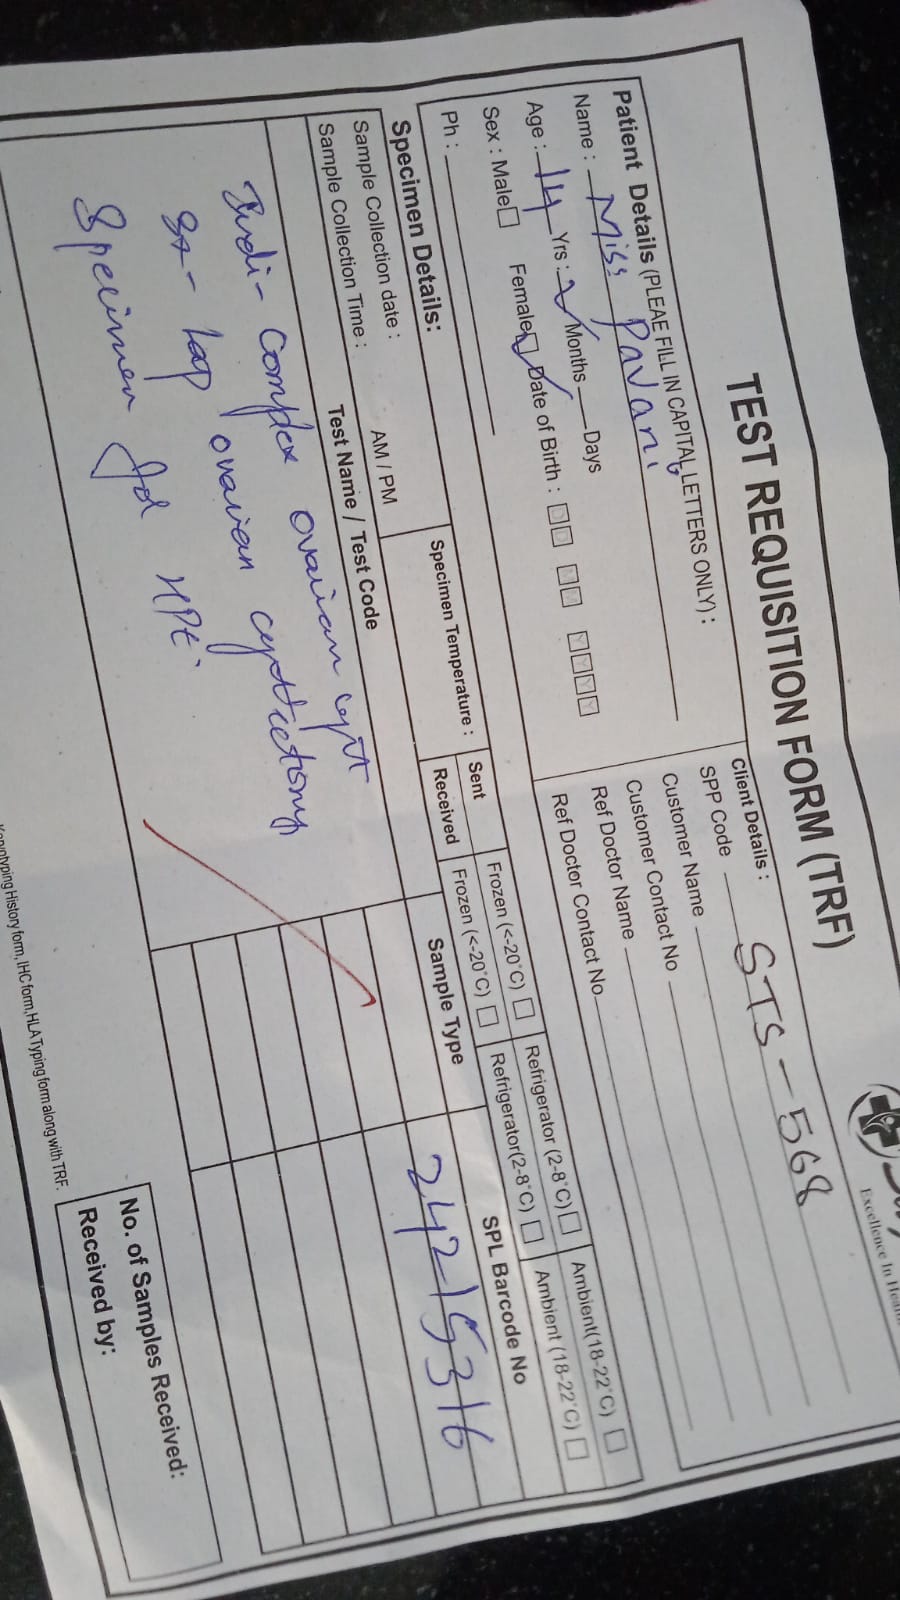 Excellence In Heal
TEST REQUISITION FORM (TRF)
Patient Details (PLEAE FILL IN CAPITAL LETTERS ONLY) :
Name : Miss Pavani
Age : 14 Yrs : Months Days
Sex : Male Female Date of Birth : D D M M Y Y Y Y
Ph :
Client Details :
SPP Code STS - 568
Customer Name
Customer Contact No
Ref Doctor Name
Ref Doctor Contact No
Specimen Details:
Sample Collection date :
Sample Collection Time : AM / PM
Specimen Temperature :
Sent Frozen (<-20°C) Refrigerator (2-8°C) Ambient(18-22°C)
Received Frozen (<-20°C) Refrigerator(2-8°C) Ambient (18-22°C)
Test Name / Test Code Sample Type SPL Barcode No
24215316
Indi- Complex ovarian cyst
Sx- Lap ovarian cystectomy
Specimen for HPE.
No. of Samples Received:
Received by:
Karyotyping History form, IHC form,HLA Typing form along with TRF.